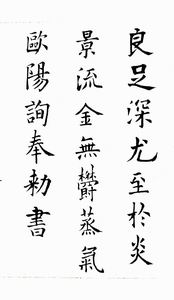 良足深尤至於炎
景流金無鬱蒸氣
歐陽詢奉勅書